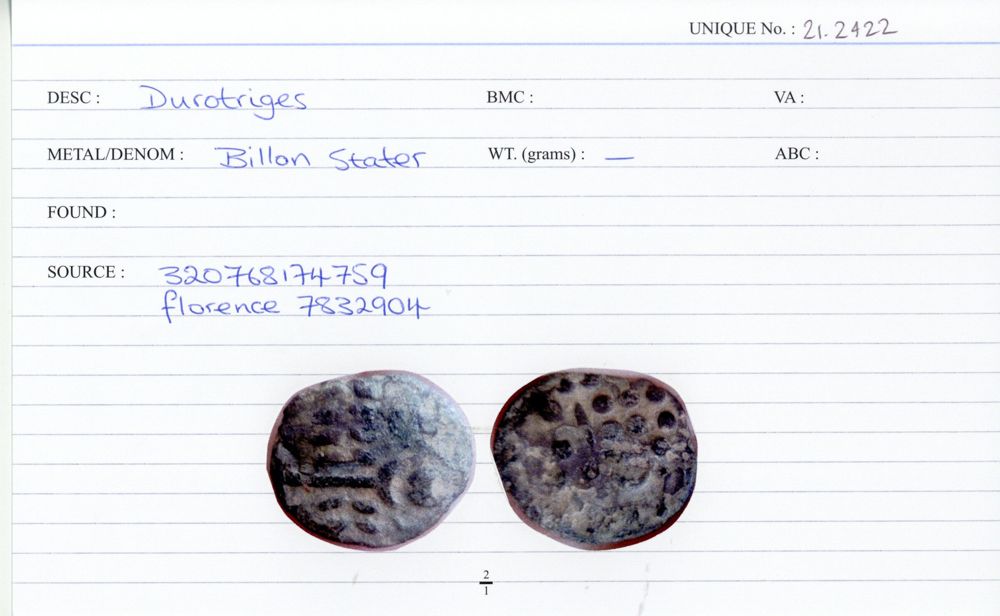 UNIQUE No. : 21.2422
DESC : Durotriges BMC : VA :
METAL/DENOM : Billon Stater WT. (grams) : — ABC :
FOUND :
SOURCE : 320768174759
florence 7832904
2
1